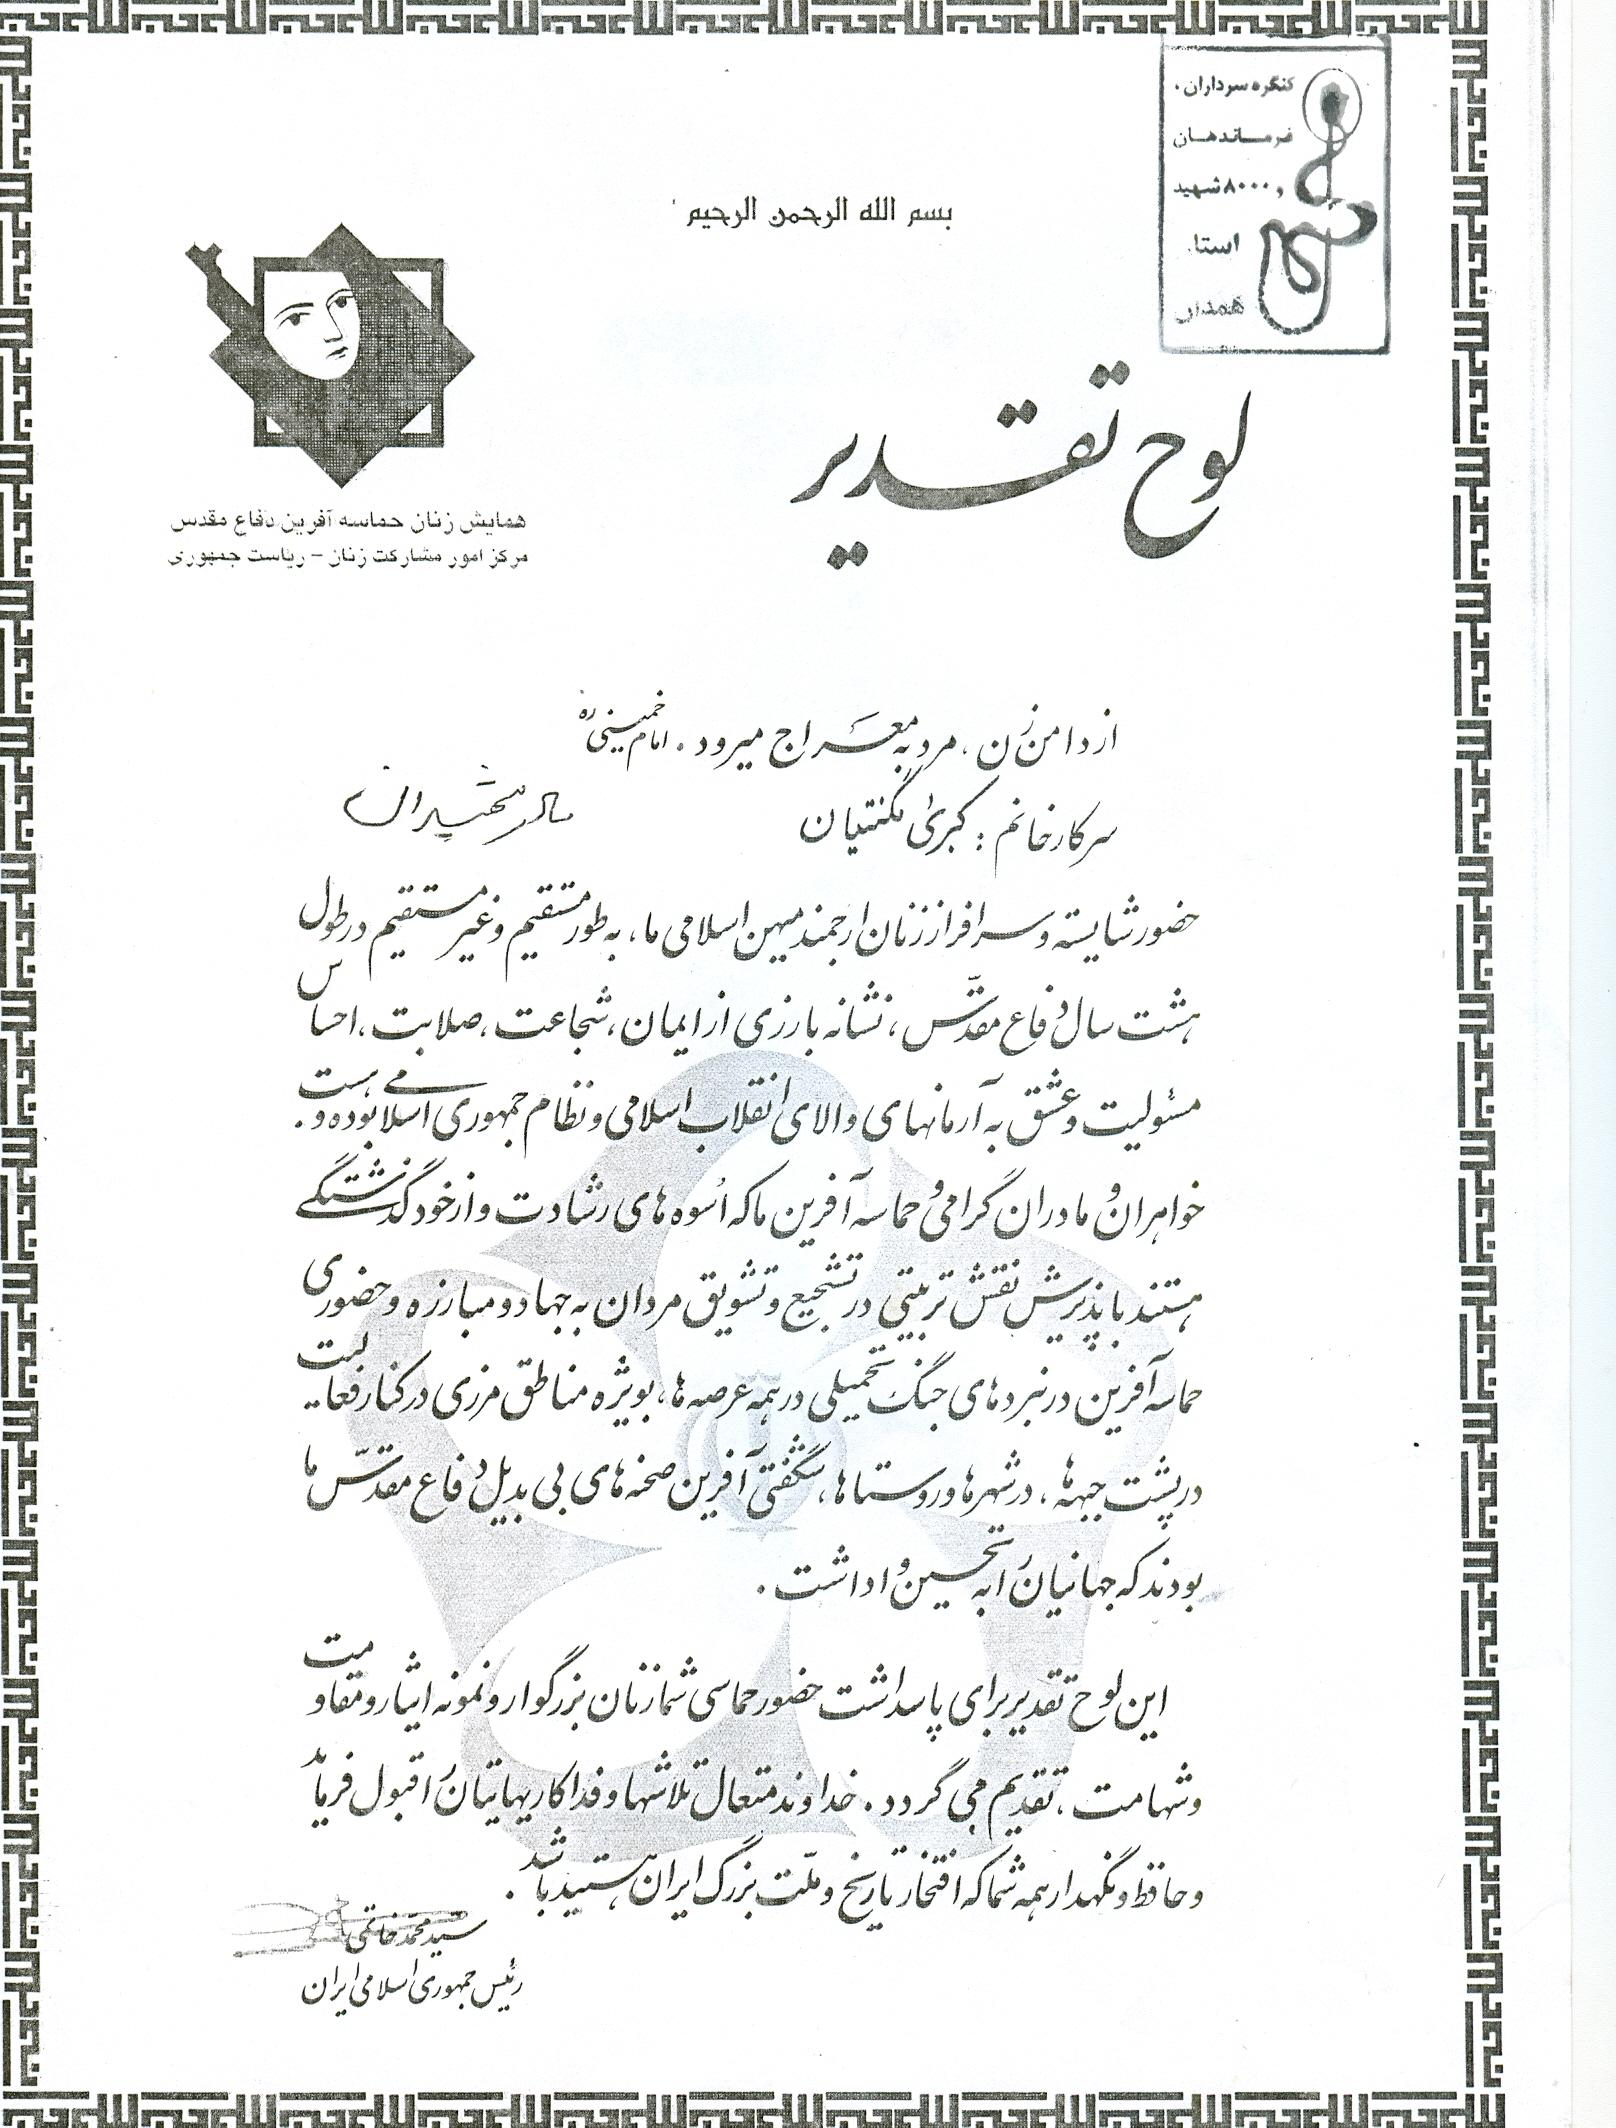 کنگره سرداران،
فرماندهان
و ۸۰۰۰ شهید
استا
همدان
بسم الله الرحمن الرحیم
لوح تقدیر
همایش زنان حماسه آفرین دفاع مقدس
مرکز امور مشارکت زنان - ریاست جمهوری
از دامن زن ، مرد به معراج میرود . امام خمینی ره
سرکار خانم : کبری نگنتیان
مادر شهیدان
حضور شایسته و سرافراز زنان ارجمند میهن اسلامی ما ، به طور مستقیم و غیر مستقیم در طول
هشت سال دفاع مقدّس ، نشانه بارزی از ایمان ، شجاعت ، صلابت ، احساس
مسئولیت و عشق به آرمانهای والای انقلاب اسلامی و نظام جمهوری اسلامی بوده و هست .
خواهران و مادران گرامی و حماسه آفرین ما که اُسوه های رشادت و از خود گذشتگی
هستند با پذیرش نقش تربیتی در تشجیع و تشویق مردان به جهاد و مبارزه و حضوری
حماسه آفرین در نبردهای جنگ تحمیلی در همه عرصه ها ، بویژه مناطق مرزی در کنار فعالیت
در پشت جبهه ها ، در شهرها و روستاها ، شگفتی آفرین صحنه های بی بدیل دفاع مقدّس ما
بودند که جهانیان را به تحسین واداشت .
این لوح تقدیر برای پاسداشت حضور حماسی شما زنان بزرگوار و نمونه ایثار و مقاومت
و شهامت ، تقدیم می گردد . خداوند متعال تلاشها و فداکاریهایتان را قبول فرماید
و حافظ و نگهدار همه شما که افتخار تاریخ و ملّت بزرگ ایران هستید باشد .
سید محمد خاتمی
رئیس جمهوری اسلامی ایران